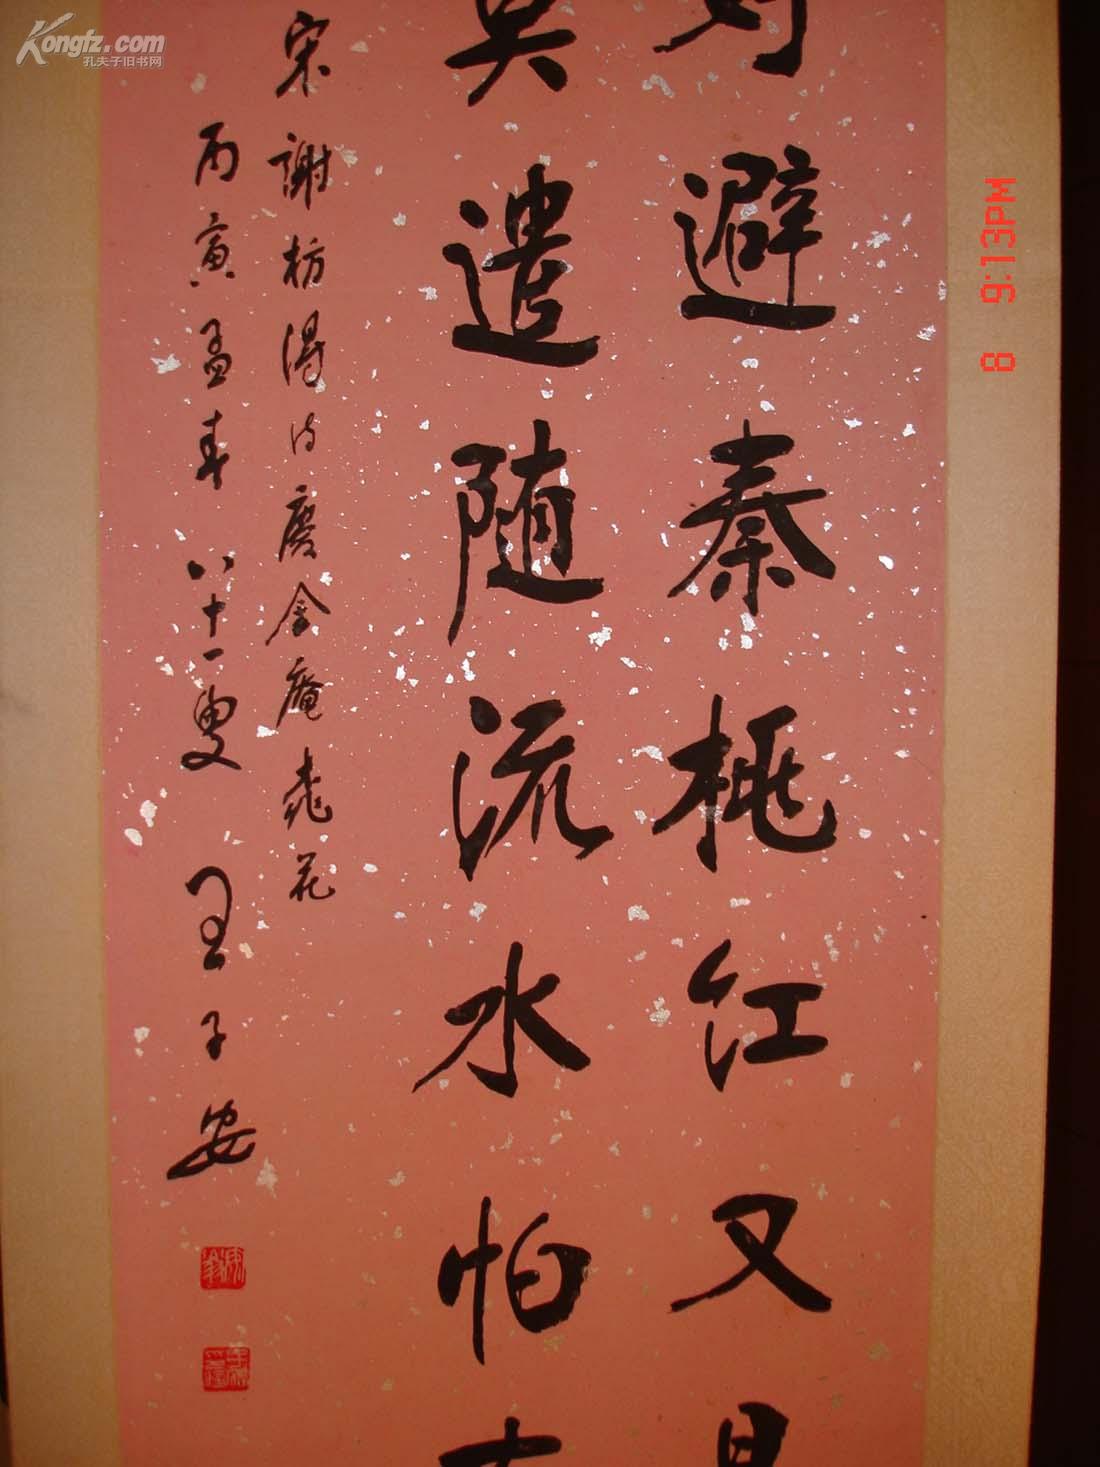 好避秦桃红又是
莫遣随流水怕有
宋謝枋得诗慶全庵桃花
丙寅孟春 八十一叟 王子安
Kongfz.com
孔夫子旧书网
8 9:13PM